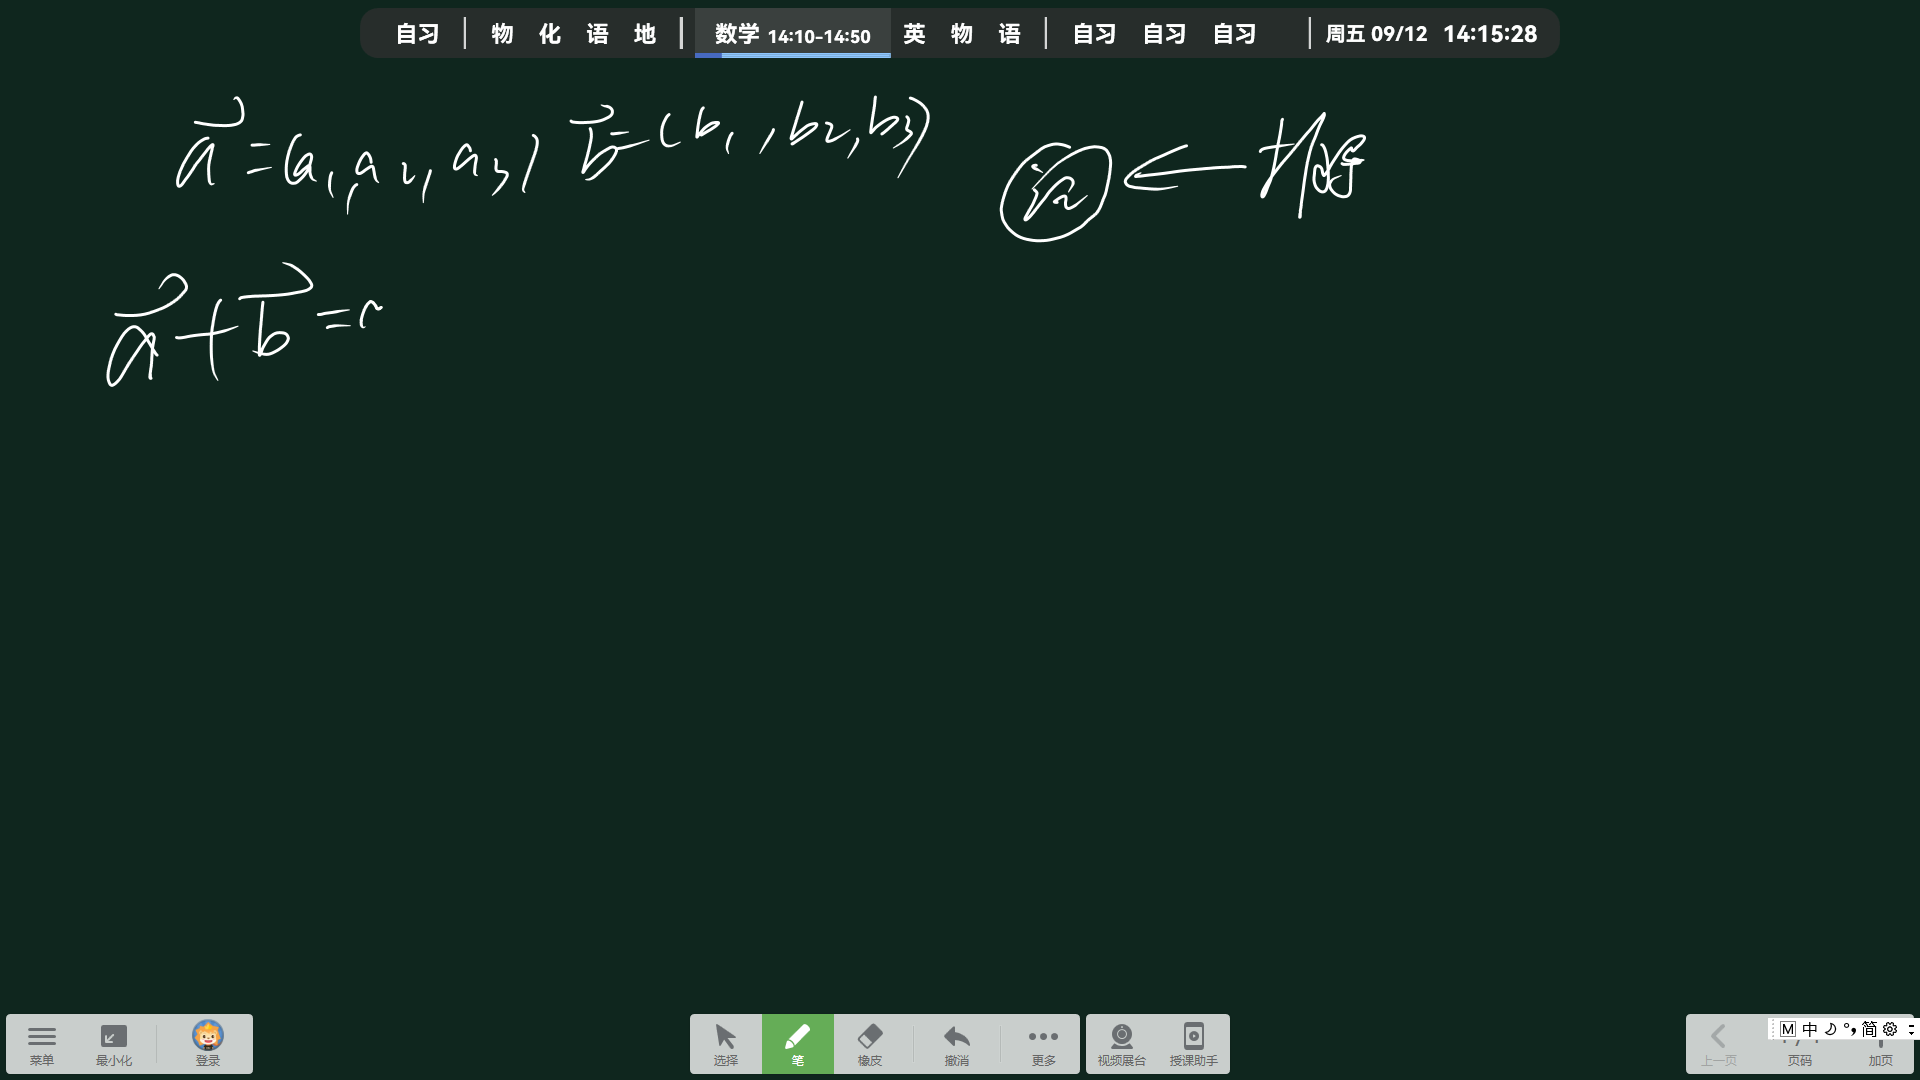 自习 | 物 化 语 地 | 数学 14:10-14:50 英 物 语 | 自习 自习 自习 | 周五 09/12 14:15:28
a⃗=(a₁,a₂,a₃) b⃗=(b₁,b₂,b₃)
a⃗+b⃗=
菜单 最小化 登录 选择 笔 橡皮 撤消 更多 视频展台 授课助手 上一页 页码 加页
M 中 简